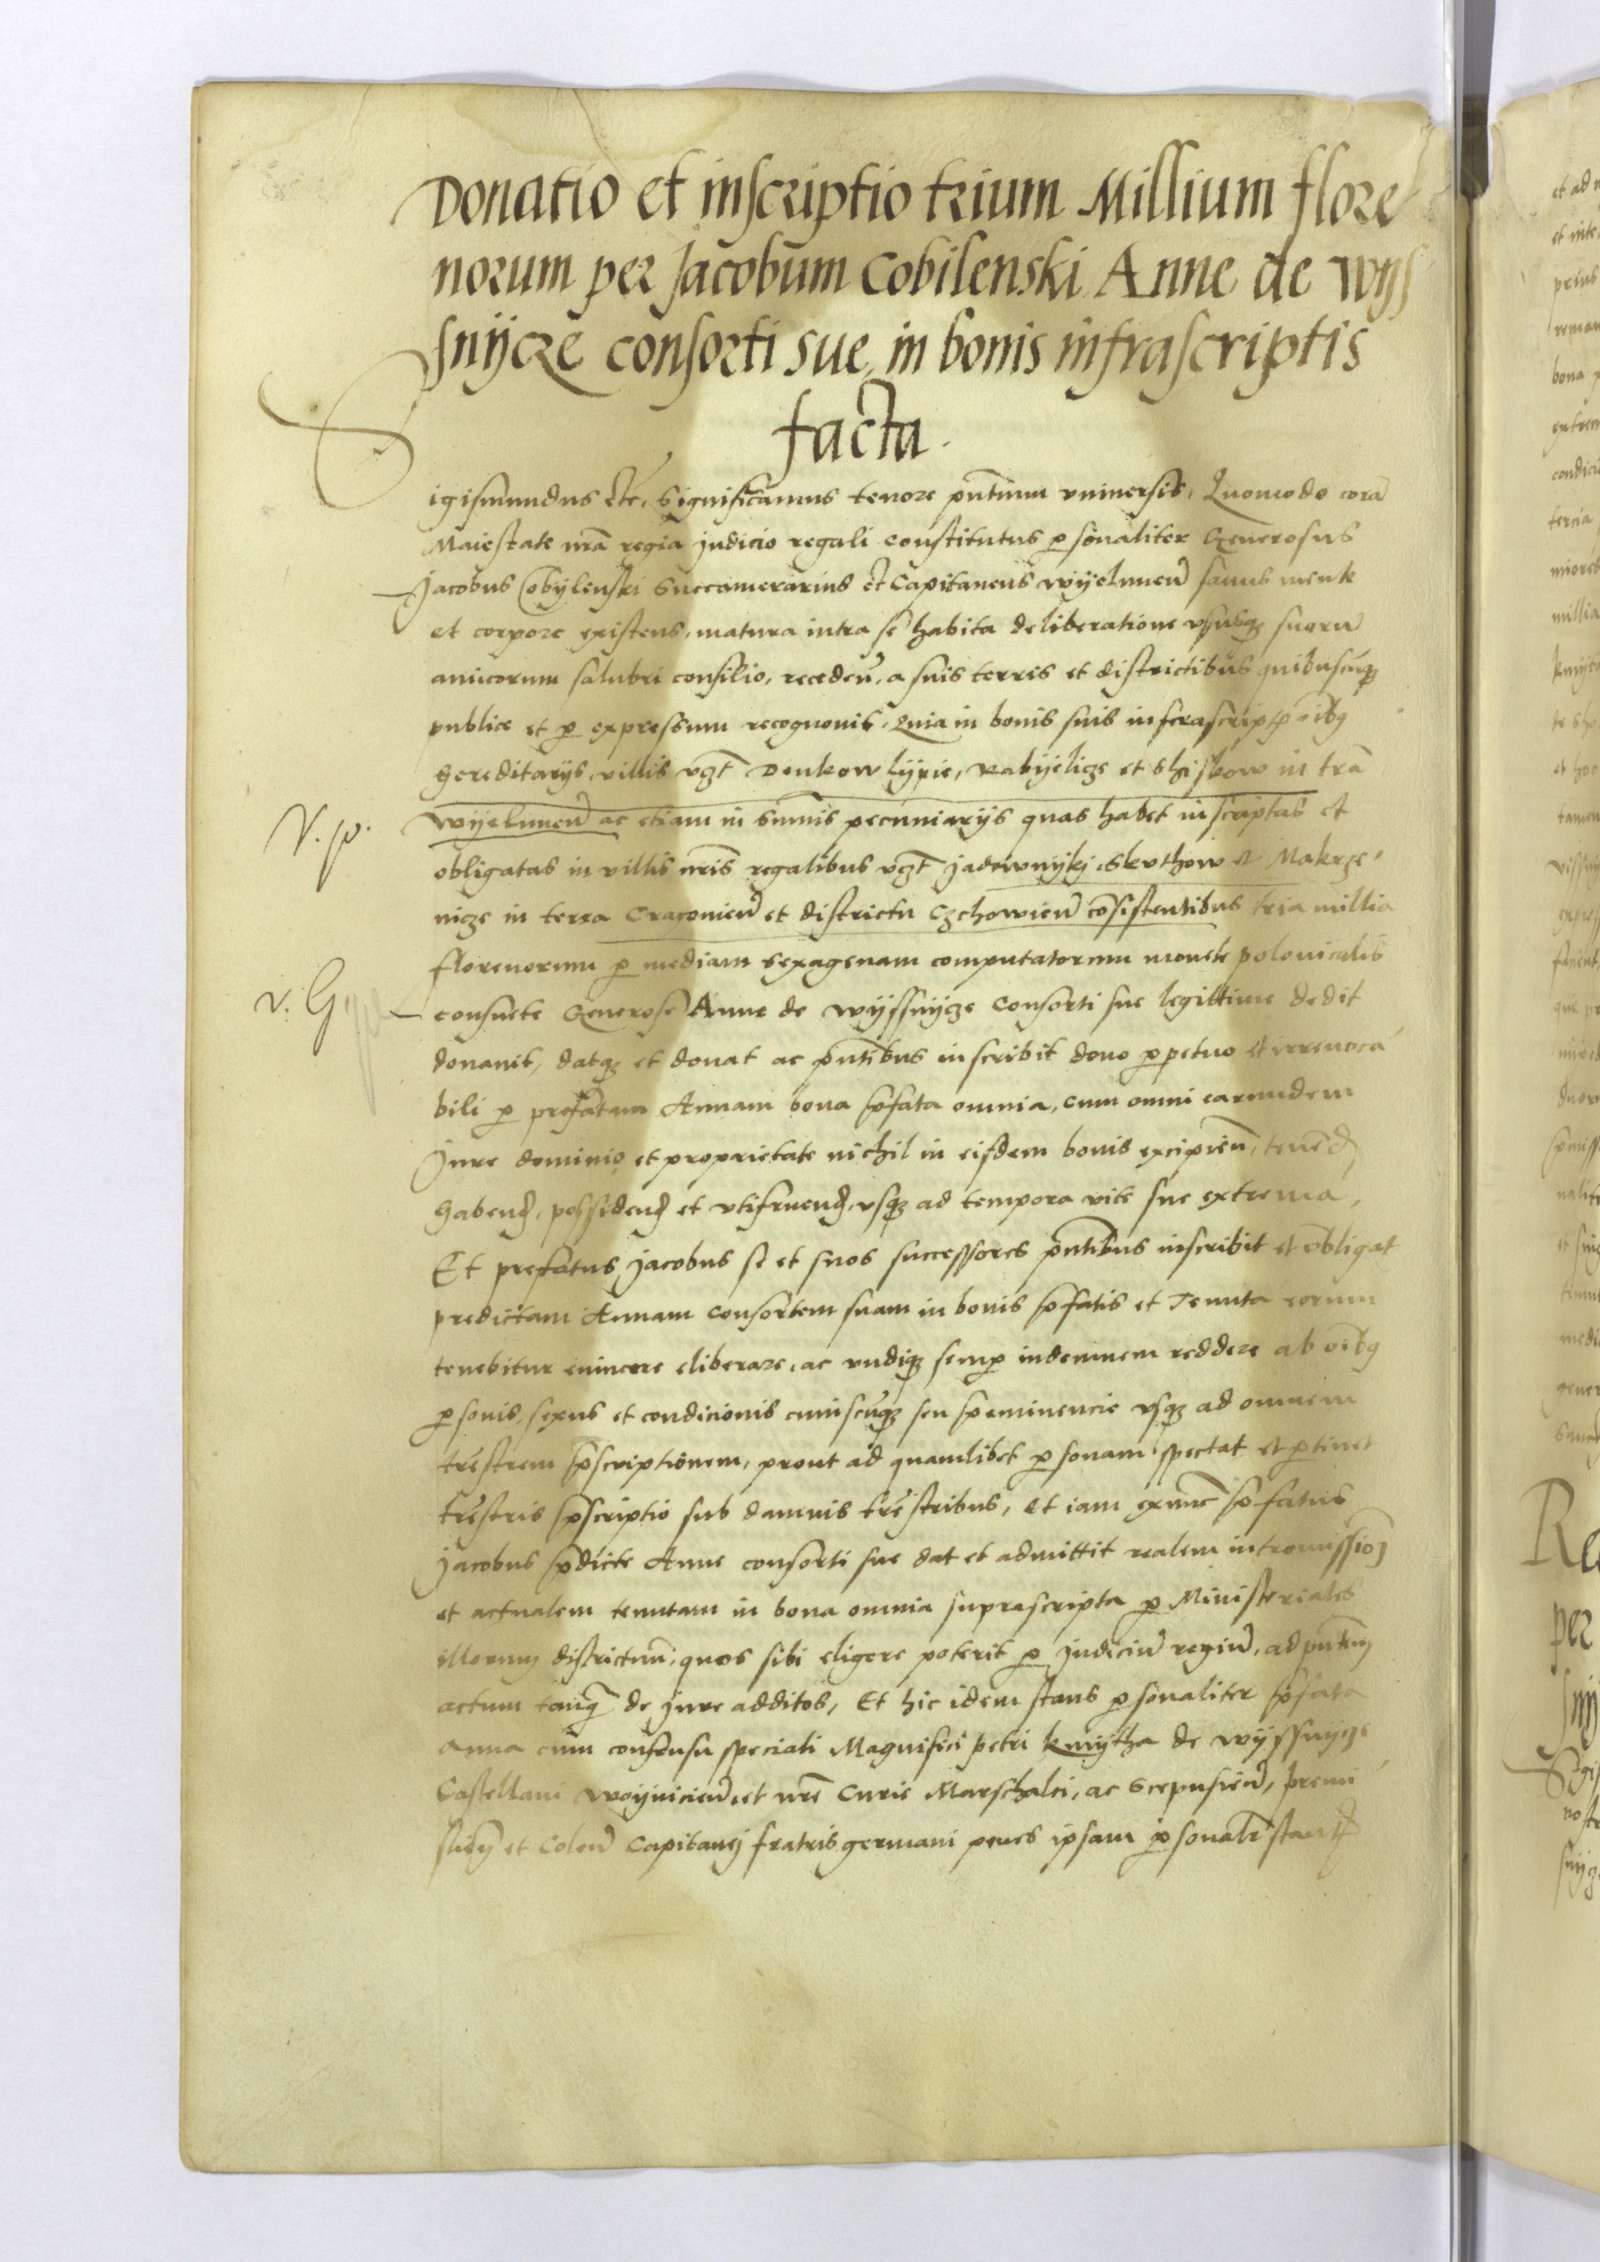 Donatio et inscriptio trium Millium flore
norum per Jacobum Cobilenski Anne de Wijs
snijcze consorti sue in bonis infrascriptis
facta.
Sigismundus etc. Significamus tenore pntium vniuersis, Quomodo cora
Maiestate nra regia judicio regali constitutus psonaliter Generosus
Jacobus Cobylenski Succamerarius et Capitaneus Wijelunen sanus mente
et corpore existens, matura intra se habita deliberatione vsusq suoru
amicorum salubri consilio, receden, a suis terris et districtibus quibuscuq
publice et p expressum recognouit, Quia in bonis suis infrascriptis oibq
hereditarijs, villis vgt Denkow Lypie, Kabijelicze et Shiskow in tra
Wijelunen ac etiam in summis pecuniarijs quas habet inscriptas et
V. p.
obligatas in villis nris regalibus vgt Jadownijkj, Skuthow et Makrze
nicze in terra Cracouien et districtu Czchowien cosistentibus tria millia
florenorum p mediam sexagenam computatorum monete polonicalis
v. G
consuete Generose Anne de Wijssnijcze Consorti sue legittime dedit
donauit, datq et donat ac pntibus inscribit dono ppetuo et irreuoca
bili p prefatam Annam bona pfata omnia, cum omni earundem
Jure dominio et proprietate nichil in eisdem bonis excipien, tenen
habend, possidend et vtifruend, vsq ad tempora vite sue extrema,
Et prefatus Jacobus se et suos successores pntibus inscribit et obligat
predictam Annam consortem suam in bonis pfatis et Tenuta eorum
tenebitur euincere eliberare, ac vndiq semp indemnem reddere ab oibq
psonis, sexus et condicionis cuiuscuq seu peminencie vsq ad omnem
trestrem pscriptionem, prout ad quamlibet psonam spectat et ptinet
trestris pscriptio sub damnis trestribus, et iam exnunc pfatus
Jacobus pdicte Anne consorti sue dat et admittit realem intromission
et actualem tenutam in bona omnia suprascripta p Ministeriales
illorum districtuu, quos sibi eligere poterit p judiciu regiu, ad pntem
actum tanq de jure additos, Et hic idem stans psonaliter pfata
Anna cum consensu speciali Magnifici Petri Kmijtha de Wijssnijcze
Castellani Woijnicien, et nre Curie Marschalci, ac Scepusien, Premi
slien et Colen Capitanej fratris germani penes ipsam psonalr stan